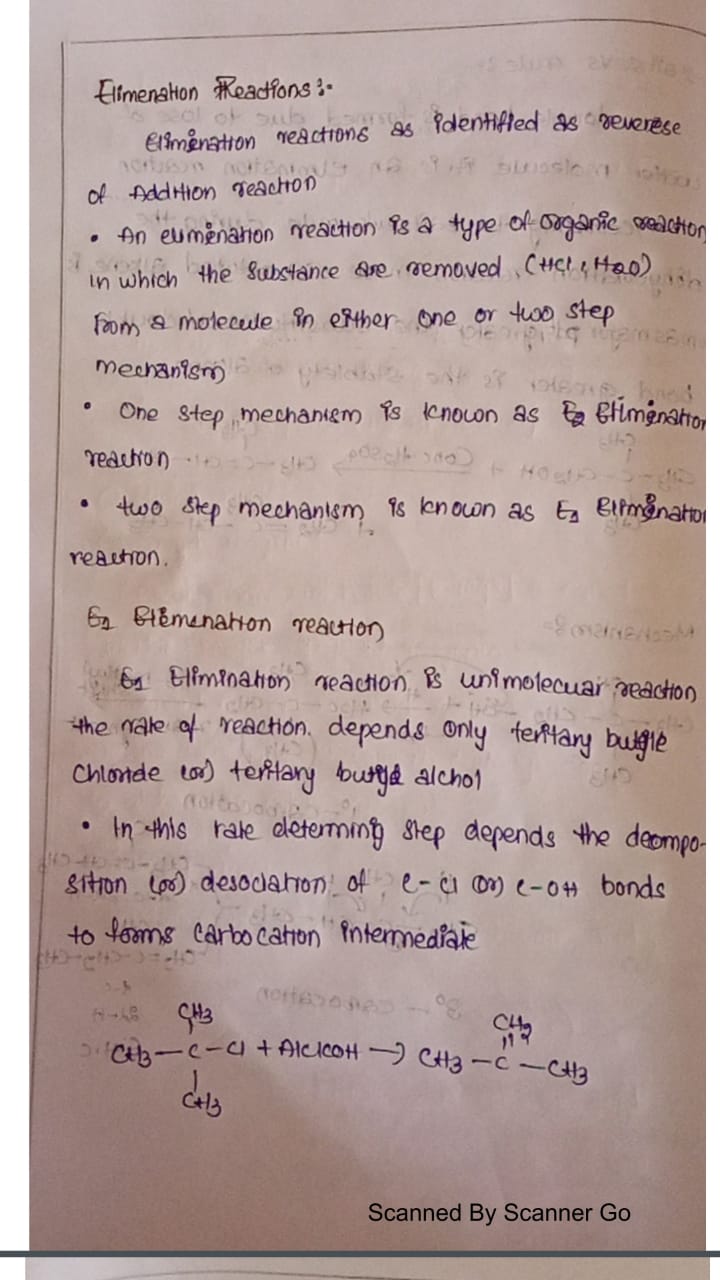 Elimenation Reactions :-
Elimination reactions as identified as reverese
of Addition reaction
• An elimination reaction is a type of organic reaction
in which the substance are removed (HCl, H2O)
from a molecule in either one or two step
mechanism
• One step mechanism is known as E2 Elimination
reaction
• two step mechanism is known as E1 Elimination
reaction.
Elemenation reaction
E1 Elimination reaction is unimolecuar reaction
the rate of reaction. depends only teritary
Chloride (or) teritary alchol
• In this rate determing step depends the deompo-
sition (or) desociation of C-Cl (or) C-OH bonds
to forms carbocation intermediate
CH3 CH2
CH3-C-Cl + AlclCOH → CH3-C-CH3
CH3
Scanned By Scanner Go